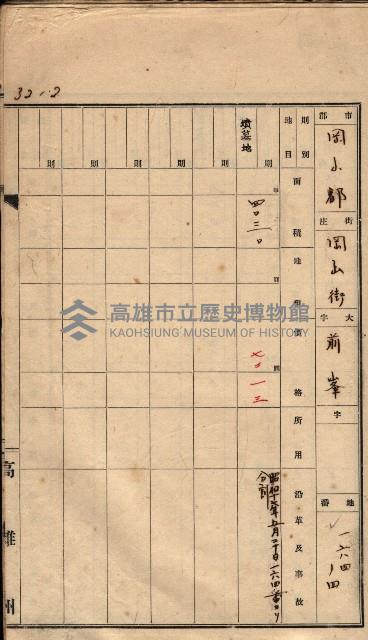 32.2
市郡 岡山郡
街庄 岡山街
大字 前峯
字
地番 一六四ノ四
則別
地目
面積
地租
價格
所用
沿革及事故
墳墓地
則
則
則
則
則
則
四〇三〇
七〇一三
昭和十六年五月二十日一六四番ヨリ
分割
高雄市立歷史博物館
KAOHSIUNG MUSEUM OF HISTORY
高雄州